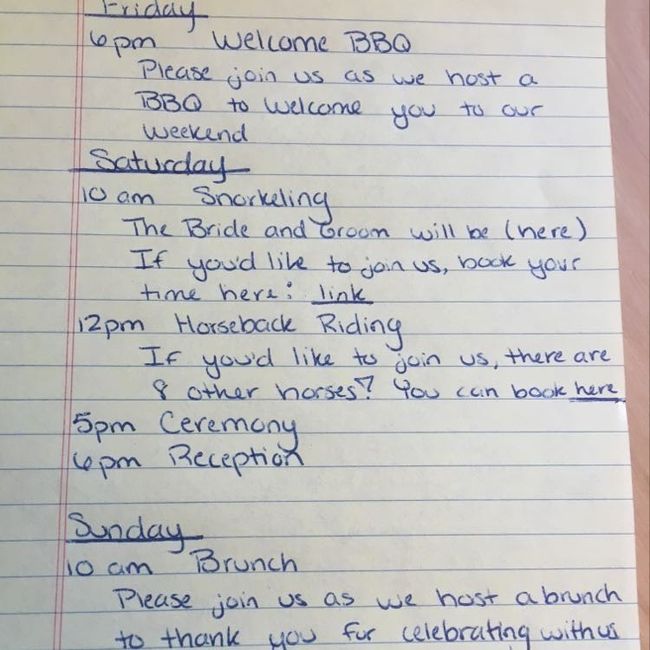 Friday
6pm Welcome BBQ
Please join us as we host a
BBQ to welcome you to our
weekend
Saturday
10 am Snorkeling
The Bride and Groom will be (here)
If you'd like to join us, book your
time here: link
12pm Horseback Riding
If you'd like to join us, there are
8 other horses? You can book here
5pm Ceremony
6pm Reception
Sunday
10 am Brunch
Please join us as we host a brunch
to thank you for celebrating with us